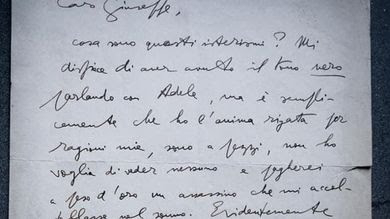 Caro Giuseppe,
cosa sono questi isterismi? Mi
dispiace di aver avuto il tono nero
parlando con Adele, ma è sempli-
cemente che ho l'anima rigata per
ragioni mie, sono a pezzi, non ho
voglia di veder nessuno e pagherei
a peso d'oro un assassino che mi accol-
tellasse nel sonno. Evidentemente